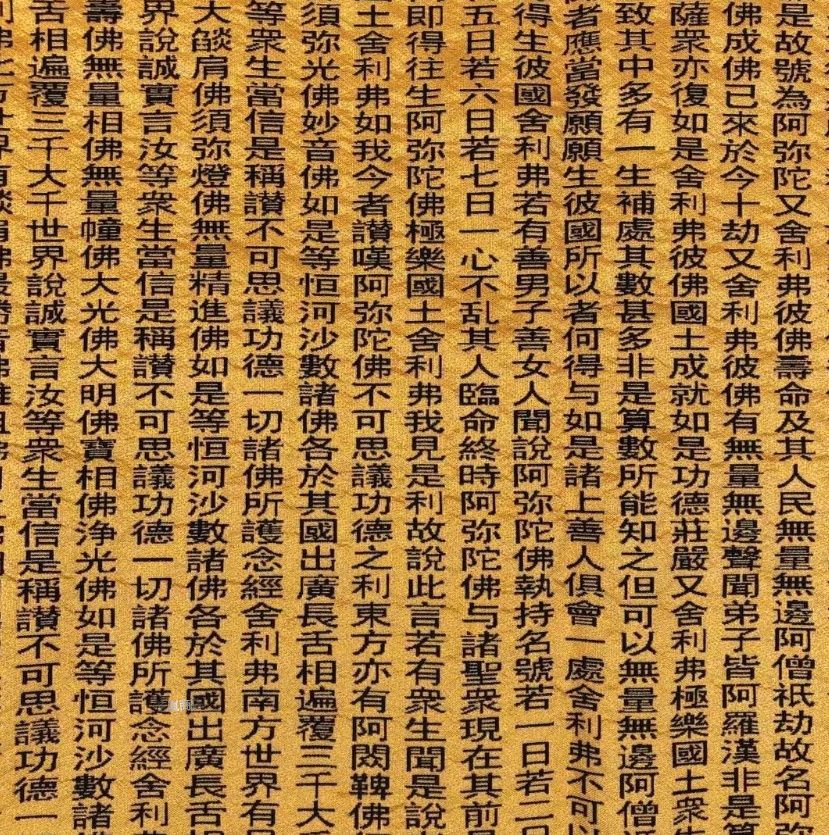 是故號為阿弥陀又舍利弗彼佛壽命及其人民無量無邊阿僧祇劫故名阿弥
佛成佛已來於今十劫又舍利弗彼佛有無量無邊聲聞弟子皆阿羅漢非是算
薩衆亦復如是舍利弗彼佛國土成就如是功德莊嚴又舍利弗極樂國土衆
致其中多有一生補處其數甚多非是算數所能知之但可以無量無邊阿僧
者應當發願願生彼國所以者何得与如是諸上善人俱會一處舍利弗不可以
得生彼國舍利弗若有善男子善女人聞說阿弥陀佛執持名號若一日若二日
五日若六日若七日一心不乱其人臨命終時阿弥陀佛与諸聖衆現在其前是
即得往生阿弥陀佛極樂國土舍利弗我見是利故說此言若有衆生聞是說
土舍利弗如我今者讃嘆阿弥陀佛不可思議功德之利東方亦有阿閦鞞佛
須弥光佛妙音佛如是等恒河沙數諸佛各於其國出廣長舌相遍覆三千大
等衆生當信是稱讃不可思議功德一切諸佛所護念經舍利弗南方世界有
大燄肩佛須弥燈佛無量精進佛如是等恒河沙數諸佛各於其國出廣長舌
界說誠實言汝等衆生當信是稱讃不可思議功德一切諸佛所護念經舍利
壽佛無量相佛無量幢佛大光佛大明佛寶相佛浄光佛如是等恒河沙數諸
舌相遍覆三千大千世界說誠實言汝等衆生當信是稱讃不可思議功德一